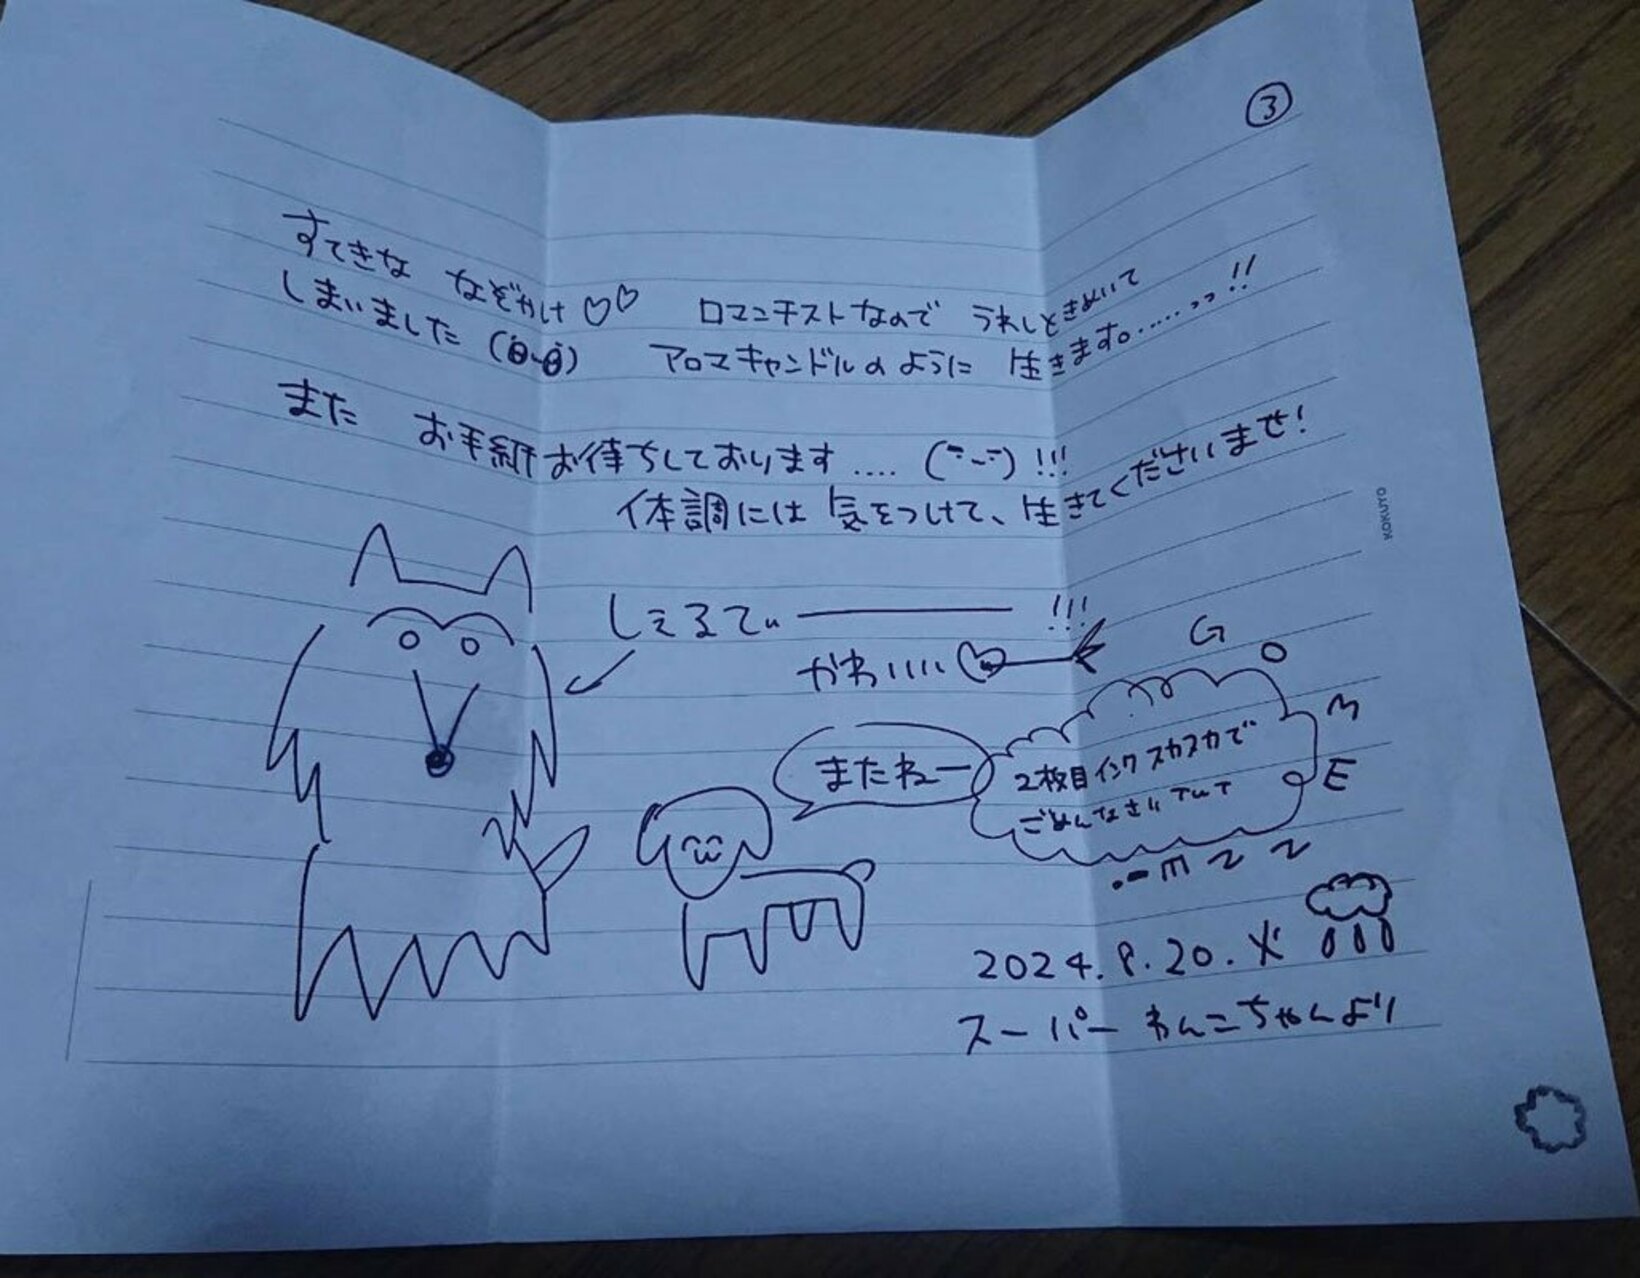 ③
すてきな なぞかけ♡♡ ロマンチストなので うれしときめいて
しまいました アロマキャンドルのように 生きます。……っっ!!
また お手紙お待ちしております…. (¨~¨) !!!
体調には 気をつけて、生きてくださいませ!
KOKUYO
しぇるてぃ―――――!!!
かわいいい
またねー
2枚目インクスカスカで
ごめんなさいTωT
GOME
2024.8.20.火
スーパーわんこちゃんより